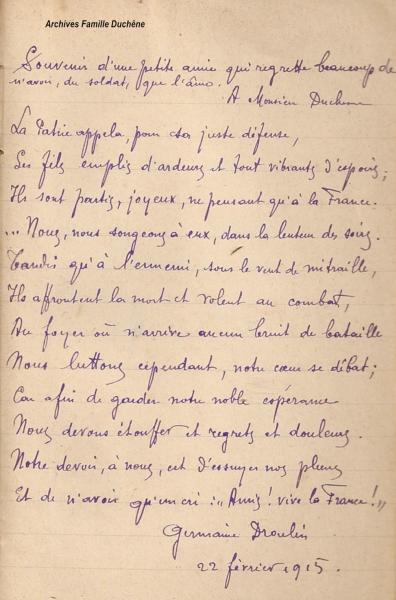 Archives Famille Duchêne
Souvenir d'une petite amie qui regrette beaucoup de
n'avoir, du soldat, que l'âme.
A Monsieur Duchesne
La Patrie appela, pour sa juste défense,
Ses fils emplis d'ardeurs et tout vibrants d'espoirs;
Ils sont partis, joyeux, ne pensant qu'à la France.
... Nous, nous songeons à eux, dans la lenteur des soirs.
Tandis qu'à l'ennemi, sous le vent de mitraille,
Ils affrontent la mort et volent au combat,
Au foyer où n'arrive aucun bruit de bataille
Nous luttons cependant, notre cœur se débat;
Car afin de garder notre noble espérance
Nous devons étouffer et regrets et douleurs.
Notre devoir, à nous, est d'essuyer nos pleurs
Et de n'avoir qu'un cri : "Amis ! vive la France !"
Germaine Droulin
22 février 1915.